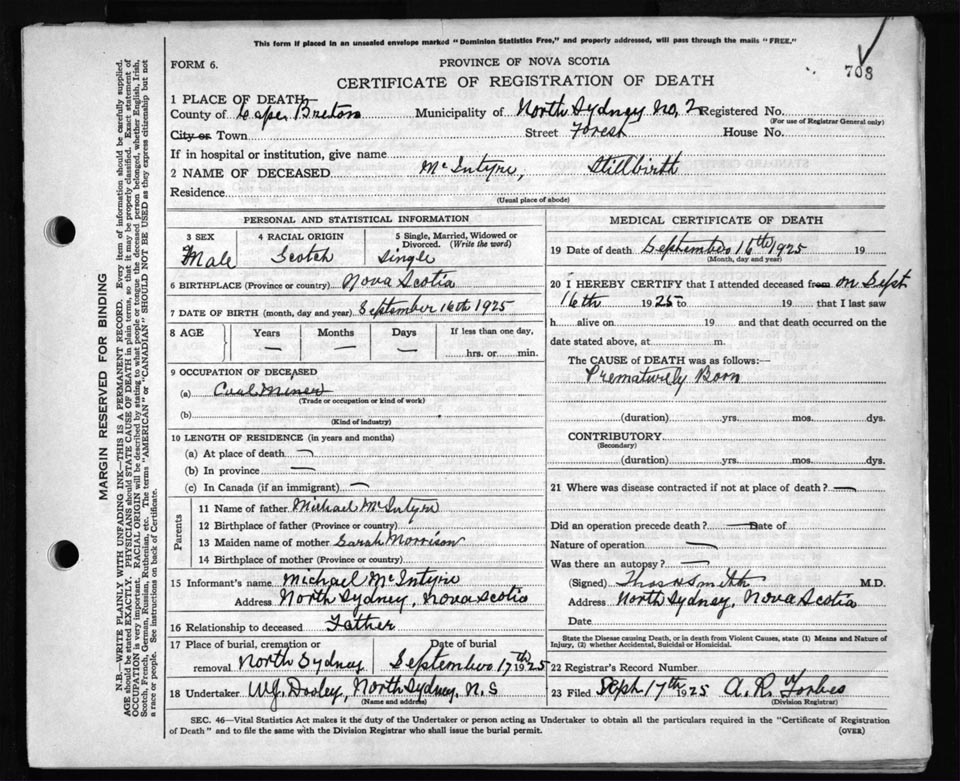 This form if placed in an unsealed envelope marked "Dominion Statistics Free," and properly addressed, will pass through the mails "FREE."
703
FORM 6.
PROVINCE OF NOVA SCOTIA
CERTIFICATE OF REGISTRATION OF DEATH
1 PLACE OF DEATH
County of Cape Breton Municipality of North Sydney No. 2 Registered No.
(For use of Registrar General only)
City or Town Street Forest House No.
If in hospital or institution, give name
2 NAME OF DECEASED McIntyre, Stillbirth
Residence
(Usual place of abode)
PERSONAL AND STATISTICAL INFORMATION
3 SEX
Male
4 RACIAL ORIGIN
Scotch
5 Single, Married, Widowed or
Divorced. (Write the word)
Single
6 BIRTHPLACE (Province or country) Nova Scotia
7 DATE OF BIRTH (month, day and year) September 16th 1925
8 AGE
Years
—
Months
—
Days
—
If less than one day,
hrs. or min.
9 OCCUPATION OF DECEASED
(a) Coal Miner
(Trade or occupation or kind of work)
(b)
(Kind of industry)
10 LENGTH OF RESIDENCE (in years and months)
(a) At place of death —
(b) In province —
(c) In Canada (if an immigrant) —
Parents
11 Name of father Michael McIntyre
12 Birthplace of father (Province or country)
13 Maiden name of mother Sarah Morrison
14 Birthplace of mother (Province or country)
15 Informant's name Michael McIntyre
Address North Sydney, Nova Scotia
16 Relationship to deceased Father
17 Place of burial, cremation or
removal North Sydney
Date of burial
September 17th 1925
18 Undertaker W.J. Dooley, North Sydney, N.S
(Name and address)
MEDICAL CERTIFICATE OF DEATH
19 Date of death September 16th 1925 19
(Month, day and year)
20 I HEREBY CERTIFY that I attended deceased from on Sept
16th 1925 to 19 that I last saw
h alive on 19 and that death occurred on the
date stated above, at m.
The CAUSE of DEATH was as follows:—
Prematurely Born
(duration) yrs. mos. dys.
CONTRIBUTORY
(Secondary)
(duration) yrs. mos. dys.
21 Where was disease contracted if not at place of death? —
Did an operation precede death? — Date of
Nature of operation —
Was there an autopsy? —
(Signed) Thos H Smith M.D.
Address North Sydney, Nova Scotia
Date
State the Disease causing Death, or in death from Violent Causes, state (1) Means and Nature of
Injury, (2) whether Accidental, Suicidal or Homicidal.
22 Registrar's Record Number
23 Filed Sept 17th 1925 A. R. Forbes
(Division Registrar)
SEC. 46—Vital Statistics Act makes it the duty of the Undertaker or person acting as Undertaker to obtain all the particulars required in the "Certificate of Registration
of Death" and to file the same with the Division Registrar who shall issue the burial permit.
(OVER)
MARGIN RESERVED FOR BINDING
N.B.—WRITE PLAINLY WITH UNFADING INK—THIS IS A PERMANENT RECORD. Every item of information should be carefully supplied.
AGE should be stated EXACTLY. PHYSICIANS should STATE CAUSE OF DEATH in plain terms, so that it may be properly classified. Exact statement of
OCCUPATION is very important. RACIAL ORIGIN will be described by stating to what people or tongue the deceased person belonged, whether English, Irish,
Scotch, French, German, Russian, Ruthenian, etc. The terms "AMERICAN" or "CANADIAN" SHOULD NOT BE USED as they express citizenship but not
a race or people. See instructions on back of Certificate.